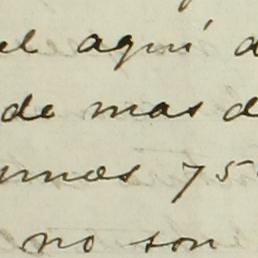 el aquí d
de mas d
unas 75
no son